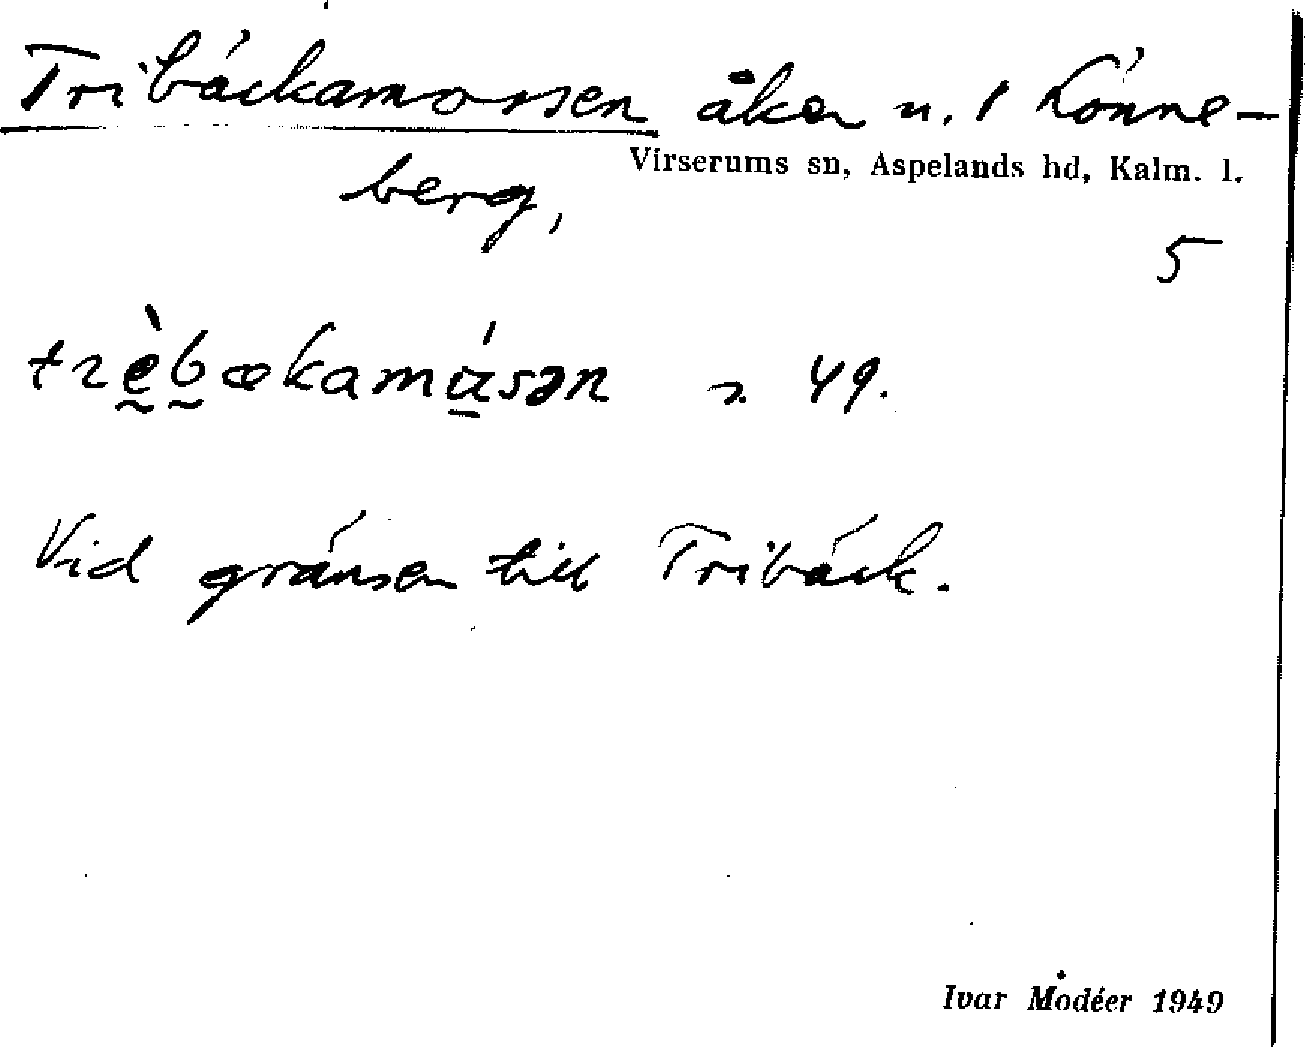 Tribäckamossen åker n. 1 Lönne-
Virserums sn, Aspelands hd, Kalm. l.
berg,
5
trèbækamásən 49.
Vid gränsen till Tribäck.
Ivar Modéer 1949